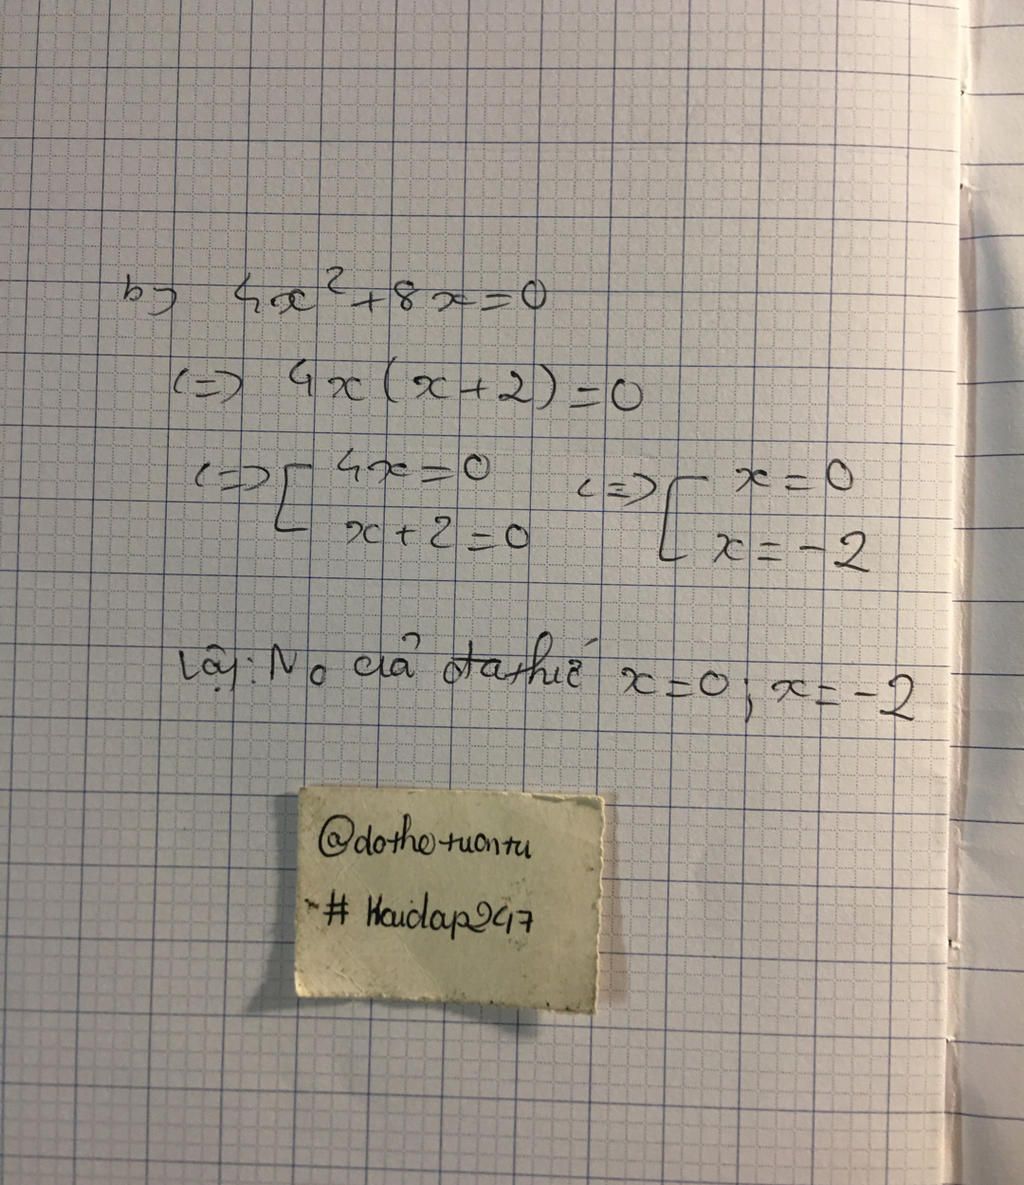 b) 4x²+8x=0
<=> 4x(x+2)=0
<=> [ 4x=0 <=> [ x=0
x+2=0 x=-2
Vậy: No của đa thức x=0; x=-2
@dothetuontu
# Hoidap247